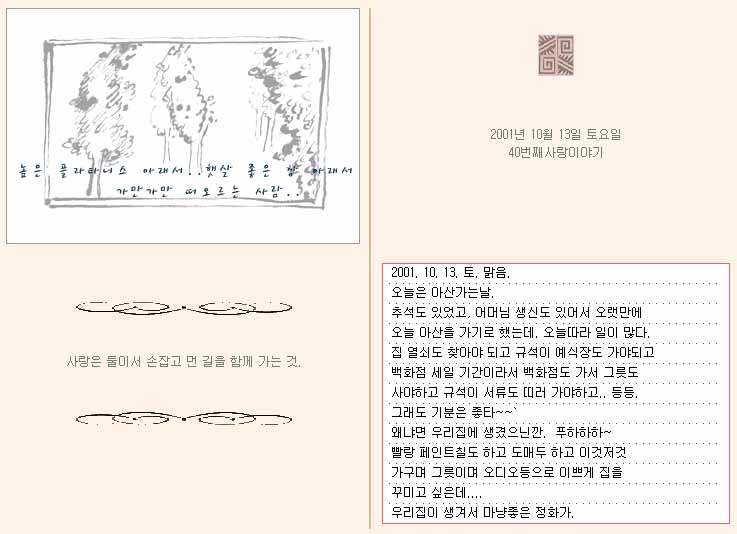 높은 플라타너스 아래서..햇살 좋은 창 아래서
가만가만 떠오르는 사람..
사랑은 둘이서 손잡고 먼 길을 함께 가는 것.
2001년 10월 13일 토요일
40번째사랑이야기
2001. 10. 13. 토. 맑음.
오늘은 아산가는날.
추석도 있었고, 어머님 생신도 있어서 오랫만에
오늘 아산을 가기로 했는데, 오늘따라 일이 많다.
집 열쇠도 찾아야 되고 규석이 예식장도 가야되고
백화점 세일 기간이라서 백화점도 가서 그릇도
사야하고 규석이 서류도 띠러 가야하고.. 등등.
그래도 기분은 좋타~~`
왜냐면 우리집에 생겼으닌깐. 푸하하하~
빨랑 페인트칠도 하고 도매두 하고 이것저것
가구며 그릇이며 오디오등으로 이쁘게 집을
꾸미고 싶은데....
우리집이 생겨서 마냥좋은 정화가.